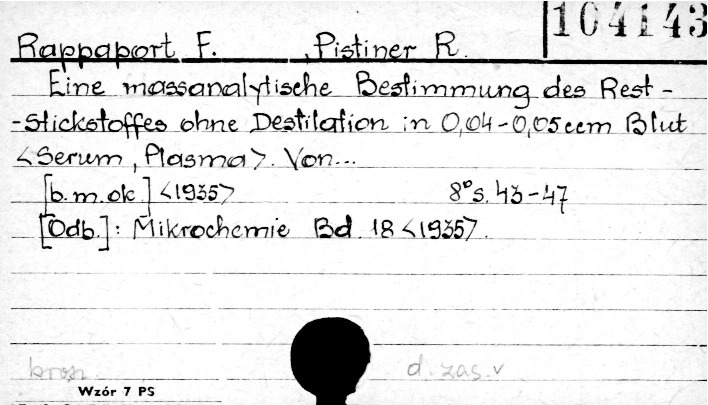 104143
Rappaport F. , Pistiner R.
Eine massanalytische Bestimmung des Rest-
-Stickstoffes ohne Destilation in 0,04-0,05 ccm Blut
<Serum, Plasma>. Von...
[b.m.ok] <1935> 8° s. 43-47
[Odb.]: Mikrochemie Bd. 18 <1935>.
brosz. d. zas. v
Wzór 7 PS